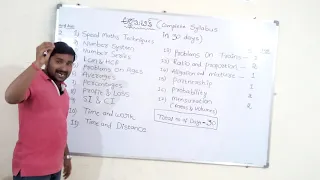 (Complete Syllabus
In 30 days)
1) Speed Maths Techniques
2) Number System
3) Number Series
4) LCM & HCF
5) Problems on Ages
6) Averages
7) Percentages
8) Profit & Loss
9) SI & CI
10) Time and work
11) Time and Distance
12) Problems On Trains - 1
13) Ratio and proportion - 2
14) Alligation and mixtures - 1
15) Partnership - 1
16) Probability
17) Mensuration
(Areas & volumes)
Total no of Days = 30